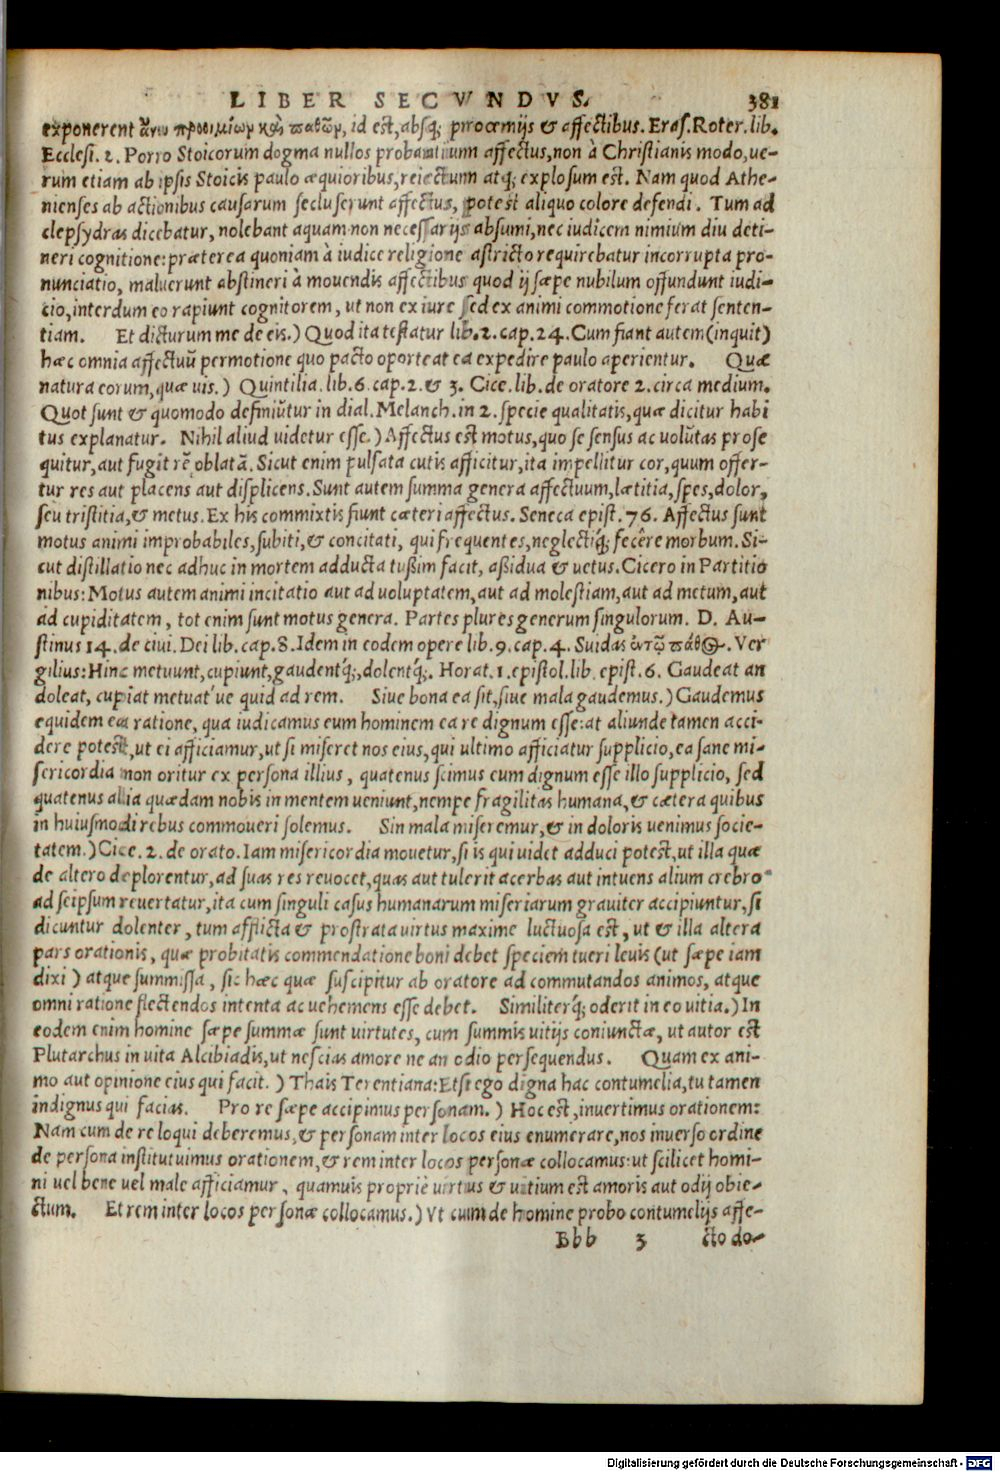 LIBER SECVNDVS. 381
exponerent ἄνευ προοιμίων καὶ παθῶν, id est, absq; prooemijs & affectibus. Eras. Roter. lib.
Ecclesi. 2. Porro Stoicorum dogma nullos probantium affectus, non à Christianis modo, ue-
rum etiam ab ipsis Stoicis paulo æquioribus, reiectum atq; explosum est. Nam quod Athe-
nienses ab actionibus causarum secluserunt affectus, potest aliquo colore defendi. Tum ad
clepsydras dicebatur, nolebant aquam non necessarijs absumi, nec iudicem nimium diu deti-
neri cognitione: præterea quoniam à iudice religione astricto requirebatur incorrupta pro-
nunciatio, maluerunt abstineri à mouendis affectibus quod ij sæpe nubilum offundunt iudi-
cio, interdum eo rapiunt cognitorem, ut non ex iure sed ex animi commotione ferat senten-
tiam. Et dicturum me de eis.) Quod ita testatur lib. 2. cap. 24. Cum fiant autem (inquit)
hæc omnia affectuũ permotione quo pacto oporteat ea expedire paulo aperientur. Quæ
natura eorum, quæ uis.) Quintilia. lib. 6. cap. 2. & 3. Cice. lib. de oratore 2. circa medium.
Quot sunt & quomodo definiũtur in dial. Melanch. in 2. specie qualitatis, quæ dicitur habi
tus explanatur. Nihil aliud uidetur esse.) Affectus est motus, quo se sensus ac volũtas prose
quitur, aut fugit rẽ oblatã. Sicut enim pulsata cutis afficitur, ita impellitur cor, quum offer-
tur res aut placens aut displicens. Sunt autem summa genera affectuum, lætitia, spes, dolor,
seu tristitia, & metus. Ex his commixtis fiunt cæteri affectus. Seneca epist. 76. Affectus sunt
motus animi improbabiles, subiti, & concitati, qui frequentes, neglectiq; fecêre morbum. Si-
cut distillatio nec adhuc in mortem adducta tußim facit, aßidua & uetus. Cicero in Partitio
nibus: Motus autem animi incitatio aut ad uoluptatem, aut ad molestiam, aut ad metum, aut
ad cupiditatem, tot enim sunt motus genera. Partes plures generum singulorum. D. Au-
stinus 14. de ciui. Dei lib. cap. 8. Idem in eodem opere lib. 9. cap. 4. Suidas πάθος. Ver
gilius: Hinc metuunt, cupiunt, gaudentq;, dolentq;. Horat. 1. epistol. lib. epist. 6. Gaudeat an
doleat, cupiat metuat'ue quid ad rem. Siue bona ea sit, siue mala gaudemus.) Gaudemus
equidem ea ratione, qua iudicamus eum hominem ea re dignum esse: at aliunde tamen acci-
dere potest, ut ei afficiamur, ut si miseret nos eius, qui ultimo afficiatur supplicio, ea sane mi-
sericordia non oritur ex persona illius, quatenus scimus eum dignum esse illo supplicio, sed
quatenus alia quædam nobis in mentem ueniunt, nempe fragilitas humana, & cætera quibus
in huiusmodi rebus commoueri solemus. Sin mala miseremur, & in doloris uenimus socie-
tatem.) Cice. 2. de orato. Iam misericordia mouetur, si is qui uidet adduci potest, ut illa quæ
de altero deplorentur, ad suas res reuocet, quas aut tulerit acerbas aut intuens alium crebro
ad seipsum reuertatur, ita cum singuli casus humanarum miseriarum grauiter accipiuntur, si
dicuntur dolenter, tum afflicta & prostrata uirtus maxime luctuosa est, ut & illa altera
pars orationis, quæ probitatis commendatione boni debet speciem tueri leuis (ut sæpe iam
dixi) atque summissa, sic hæc quæ suscipitur ab oratore ad commutandos animos, atque
omni ratione flectendos intenta ac uehemens esse debet. Similiterq; oderit in eo uitia.) In
eodem enim homine sæpe summæ sunt uirtutes, cum summis uitijs coniunctæ, ut autor est
Plutarchus in uita Alcibiadis, ut nescias amore ne an odio persequendus. Quam ex ani-
mo aut opinione eius qui facit.) Thais Terentiana: Etsi ego digna hac contumelia, tu tamen
indignus qui facias. Pro re sæpe accipimus personam.) Hoc est, inuertimus orationem:
Nam cum de re loqui deberemus, & personam inter locos eius enumerare, nos inuerso ordine
de persona instituimus orationem, & rem inter locos personæ collocamus: ut scilicet homi-
ni uel bene uel male afficiamur, quamuis propriè uirtus & uitium est amoris aut odij obie-
ctum. Et rem inter locos personæ collocamus.) Vt cum de homine probo contumelijs affe-
Bbb 3 cto do-
Digitalisierung gefördert durch die Deutsche Forschungsgemeinschaft - DFG